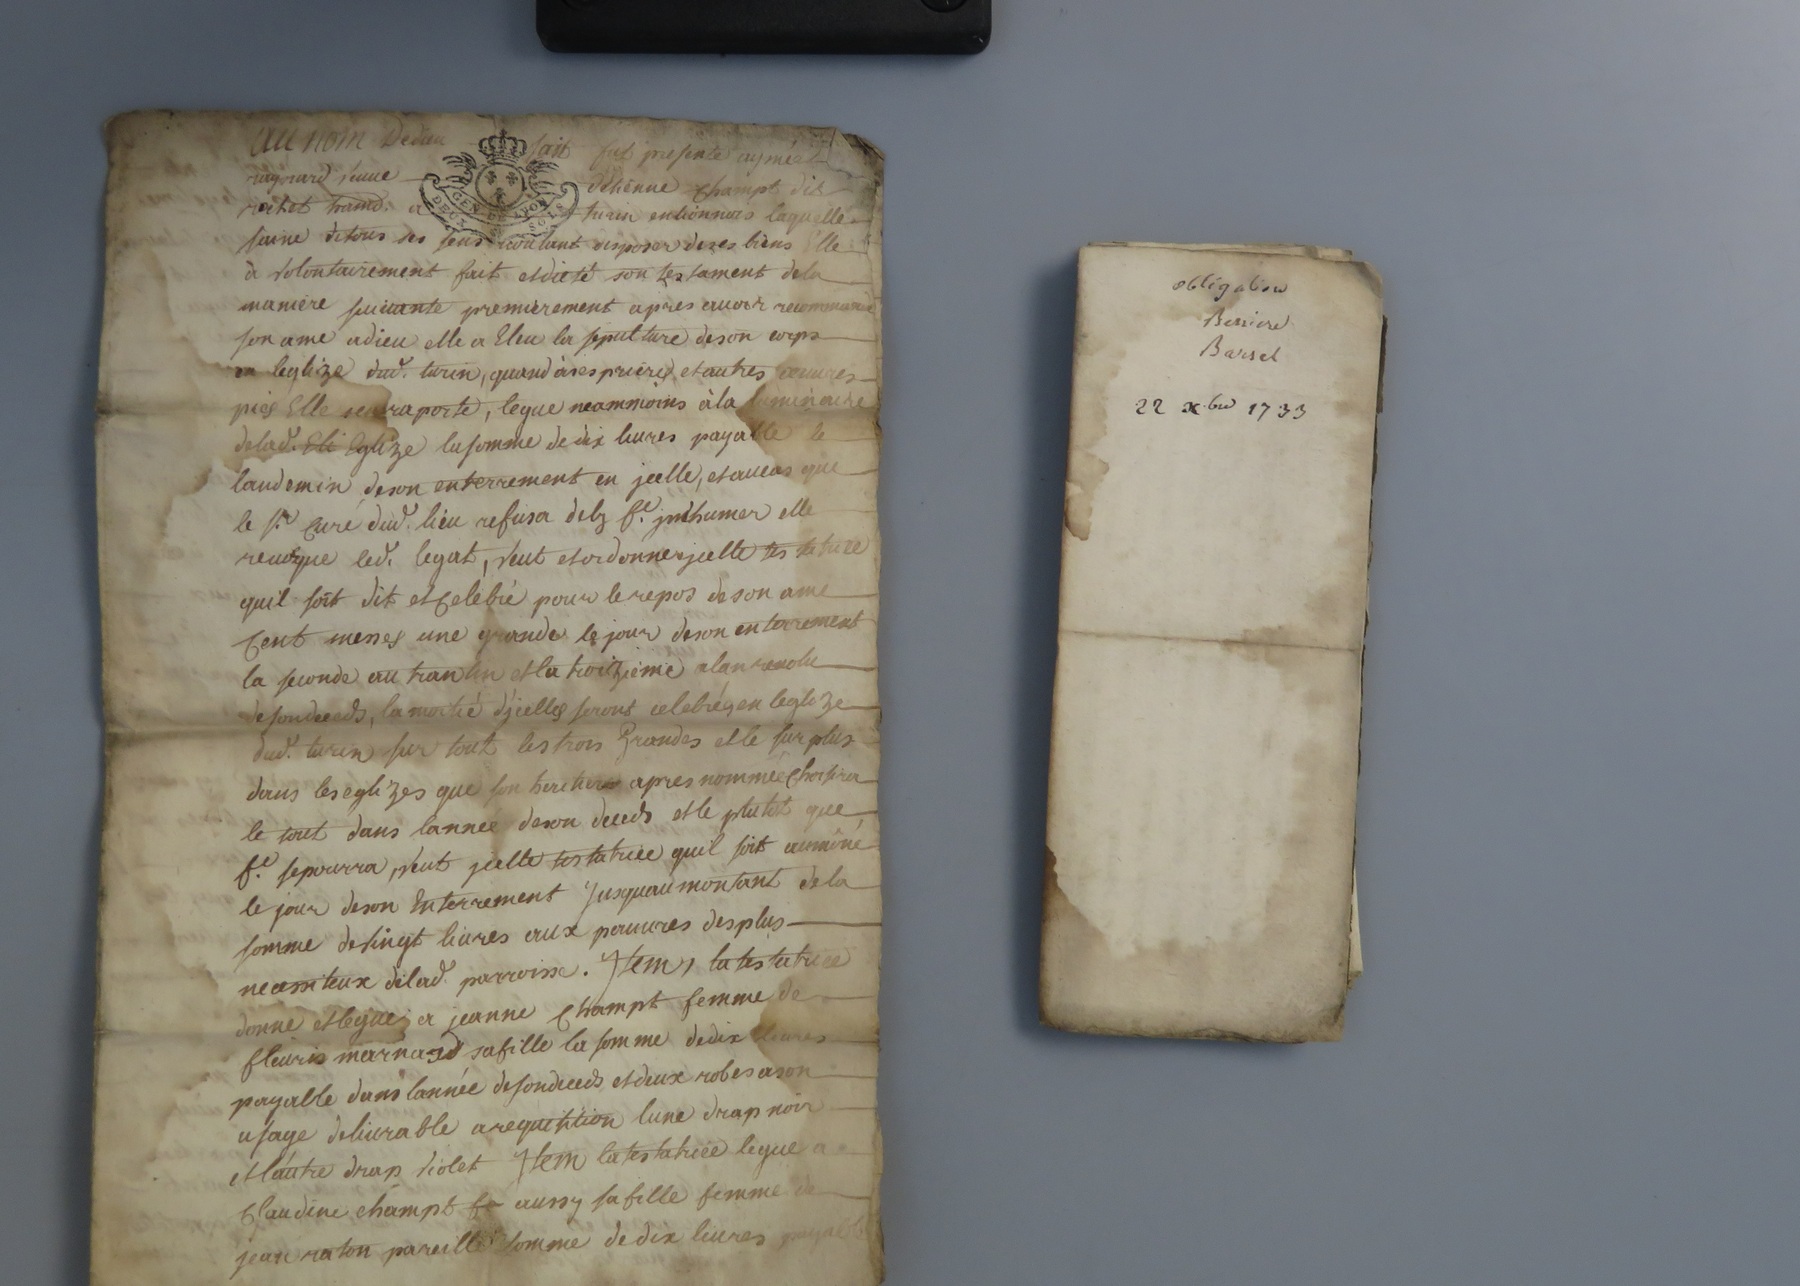 au nom de dieu soit fut presente aymée
raynard veuve detienne champt dit
rochet hamd. a turin en lionnois laquelle
saine de tous ses sens voulant disposer de ses biens Elle
a volontairement fait et dicté son testament de la
maniere suivante premierement apres avoir recommandé
son ame a dieu elle a Eleu la sepulture de son corps
en leglize dud. turin, quand à ses prieres et autres oeuvres
pies Elle sen raporte, legue neammoins à la luminaire
de lad. Eglize la somme de dix livres payable le
landemin de son enterrement en jcelle, et au cas que
le sr. Curé dud. lieu refusa de ly fe. jnhumer elle
revoque led. legat, veut et ordonne jcelle testatrice
quil soit dit et Celebré pour le repos de son ame
Cent messes une grande le jour de son enterrement
la seconde au trantin et la troizieme a lan revolu
de son deceds, la moitié djcelles seront celebrées en leglize
dud. turin sur tout les trois Grandes et le surplus
dans les eglizes que son heritier apres nommée Choisira
le tout dans lannée de son deceds et le plutot que
fe. se pourra, veut jcelle testatrice quil soit aumôné
le jour de son Enterrement Jusquau montant de la
somme de vingt livres aux pauvres des plus
necessiteux de lad. parroisse. Jtem, la testatrice
donne et legue a jeanne Champt femme de
fleuris marnard sa fille la somme de dix livres
payable dans lannée de son deceds et deux robes a son
usage delivrable a requisition lune drap noir
et lautre drap violet Jtem la testatrice legue a
Claudine champt aussy sa fille femme de
jean raton pareille somme de dix livres payable
obligation
Bessiere
Barsel
22 xbre 1733
GEN. DE LYON
DEUX SOLS